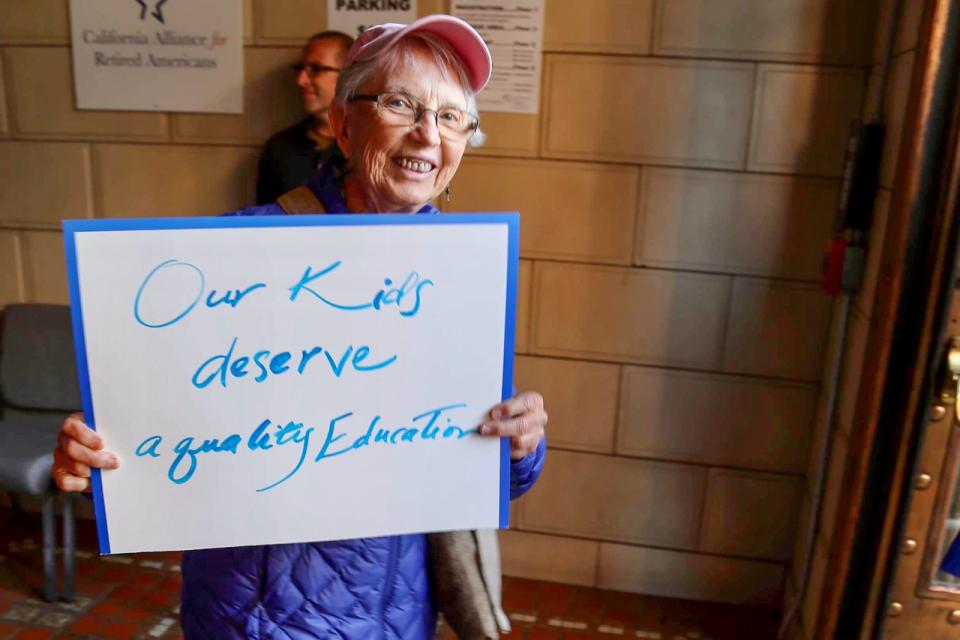 California Alliance for
Retired Americans
PARKING
REGISTRATION
Our Kids
deserve
a quality Education